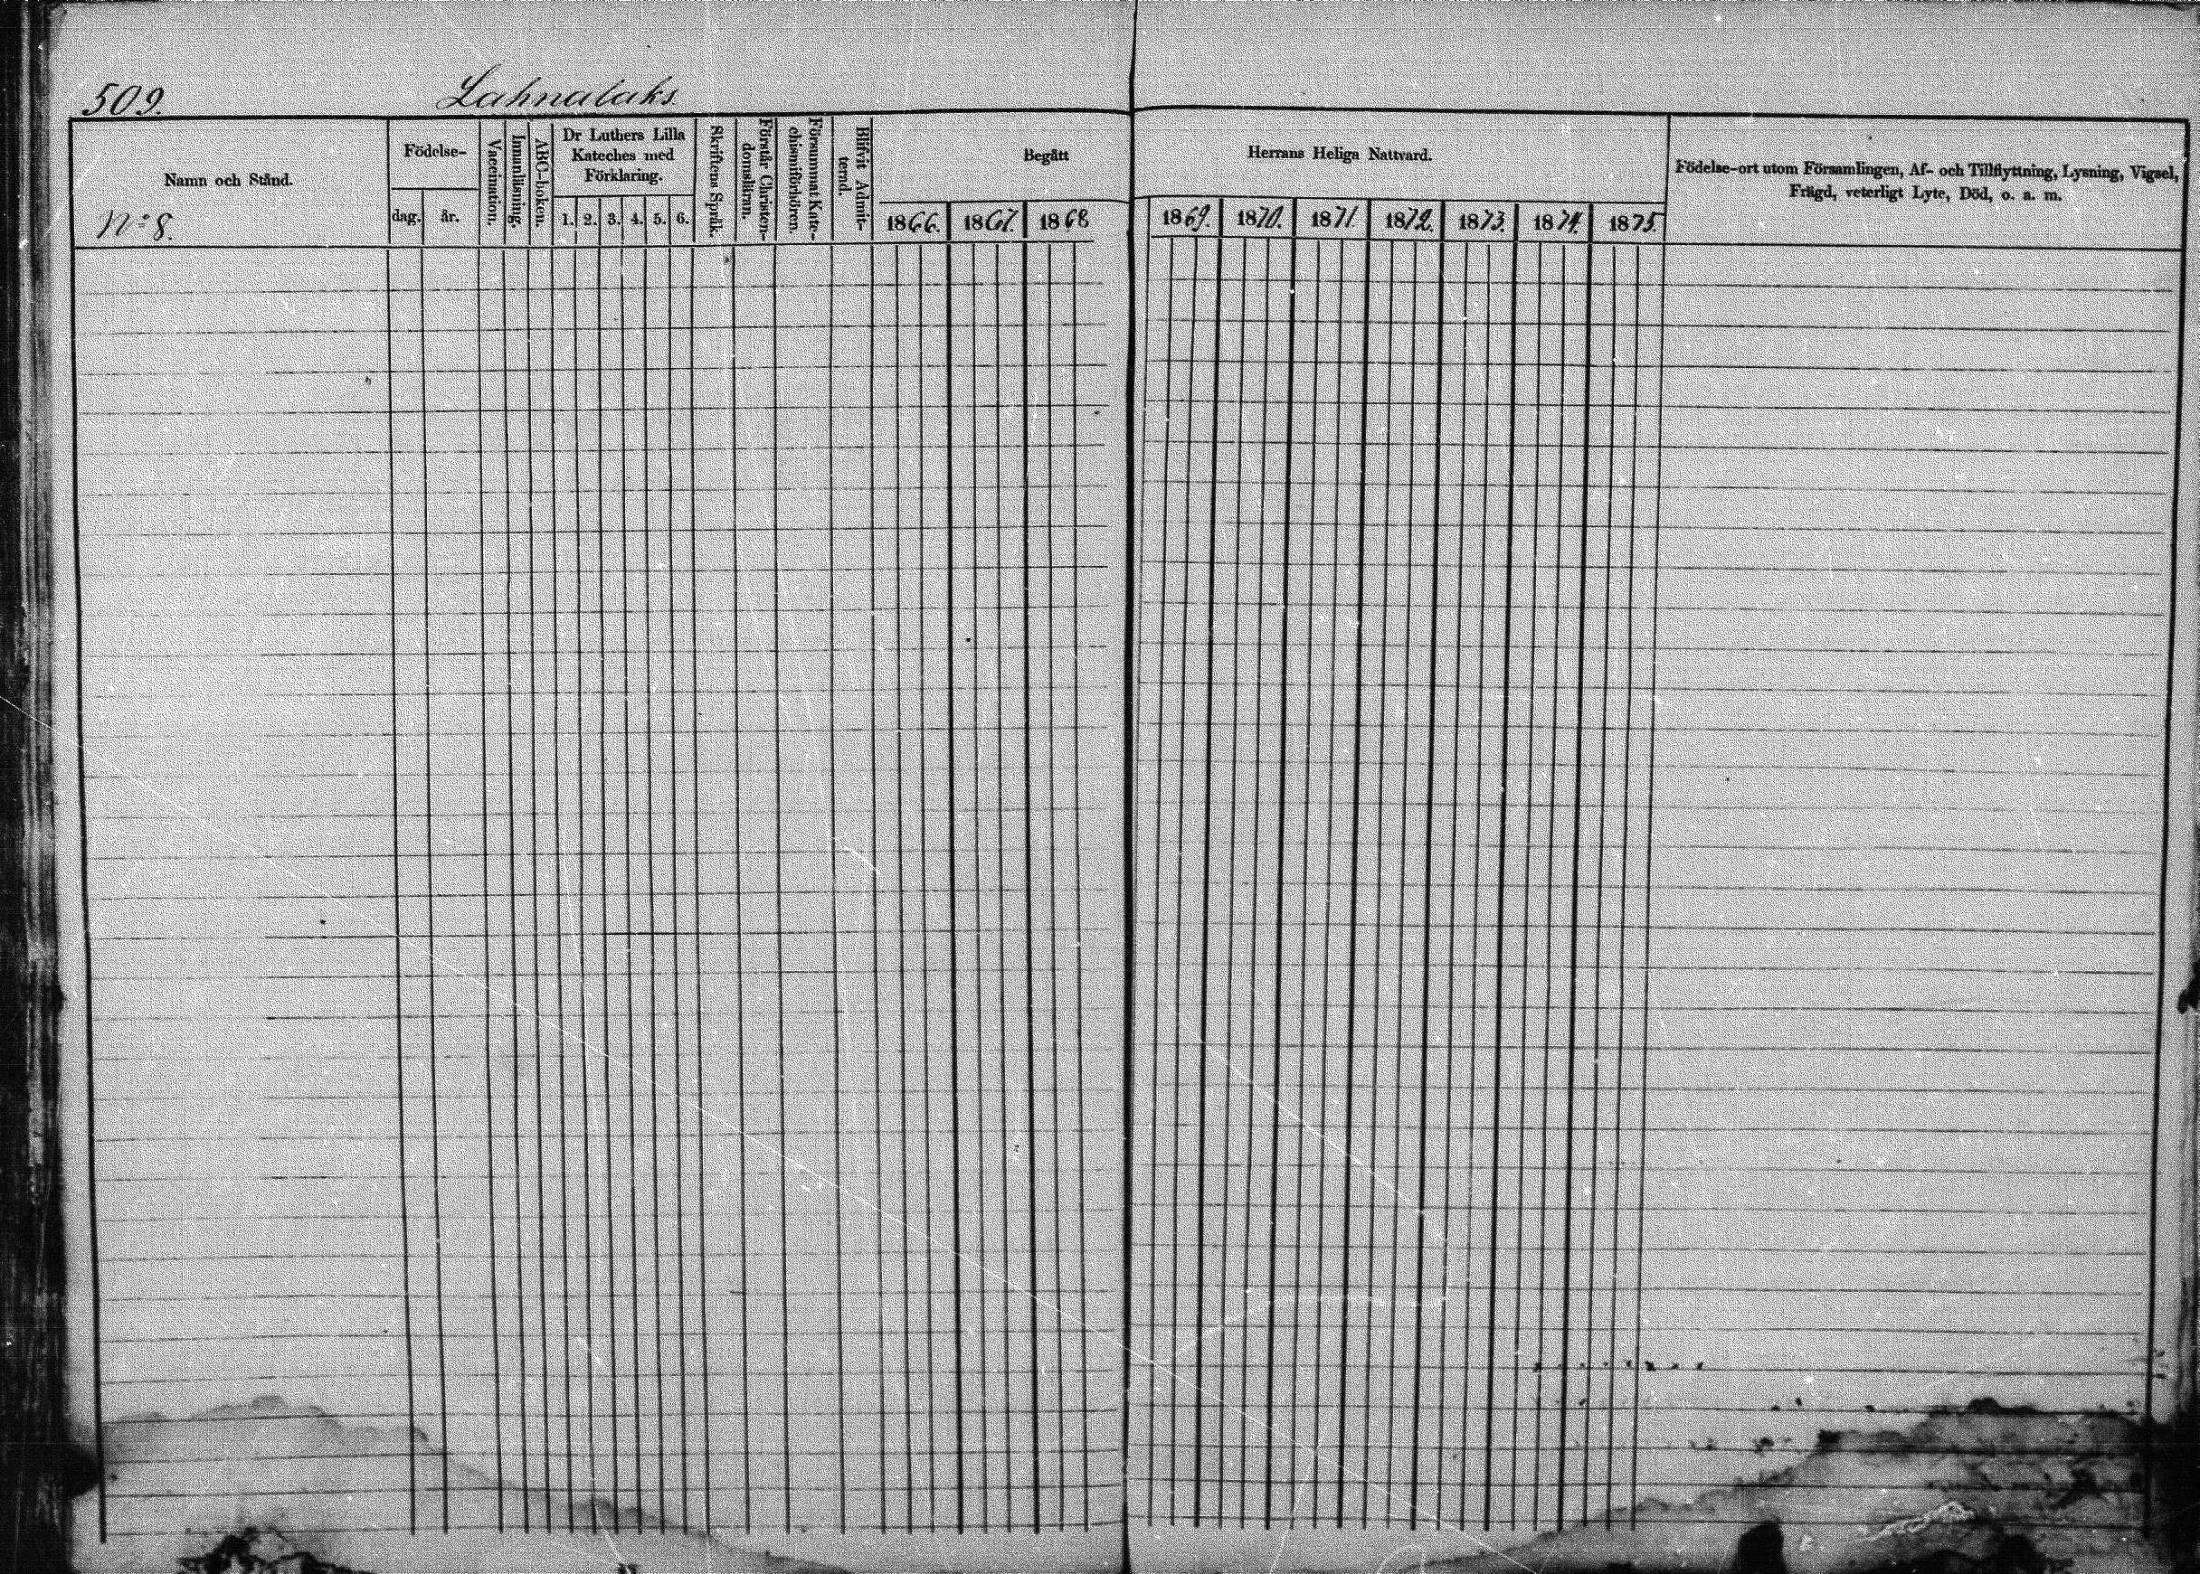 509. Lahnalaks.
Namn och Stånd.
N:o 8.
Födelse-
dag. år.
Vaccination.
Innanläsning.
ABC-boken.
Dr Luthers Lilla
Kateches med
Förklaring.
1. 2. 3. 4. 5. 6.
Skriftens Språk.
Förstår Christen-
domsläran.
Försummat Kate-
chismiförhören.
Blifvit Admit-
terad.
Begått Herrans Heliga Nattvard.
1866. 1867. 1868 1869. 1870. 1871. 1872. 1873. 1874. 1875.
Födelse-ort utom Församlingen, Af- och Tillflyttning, Lysning, Vigsel,
Frägd, veterligt Lyte, Död, o. a. m.